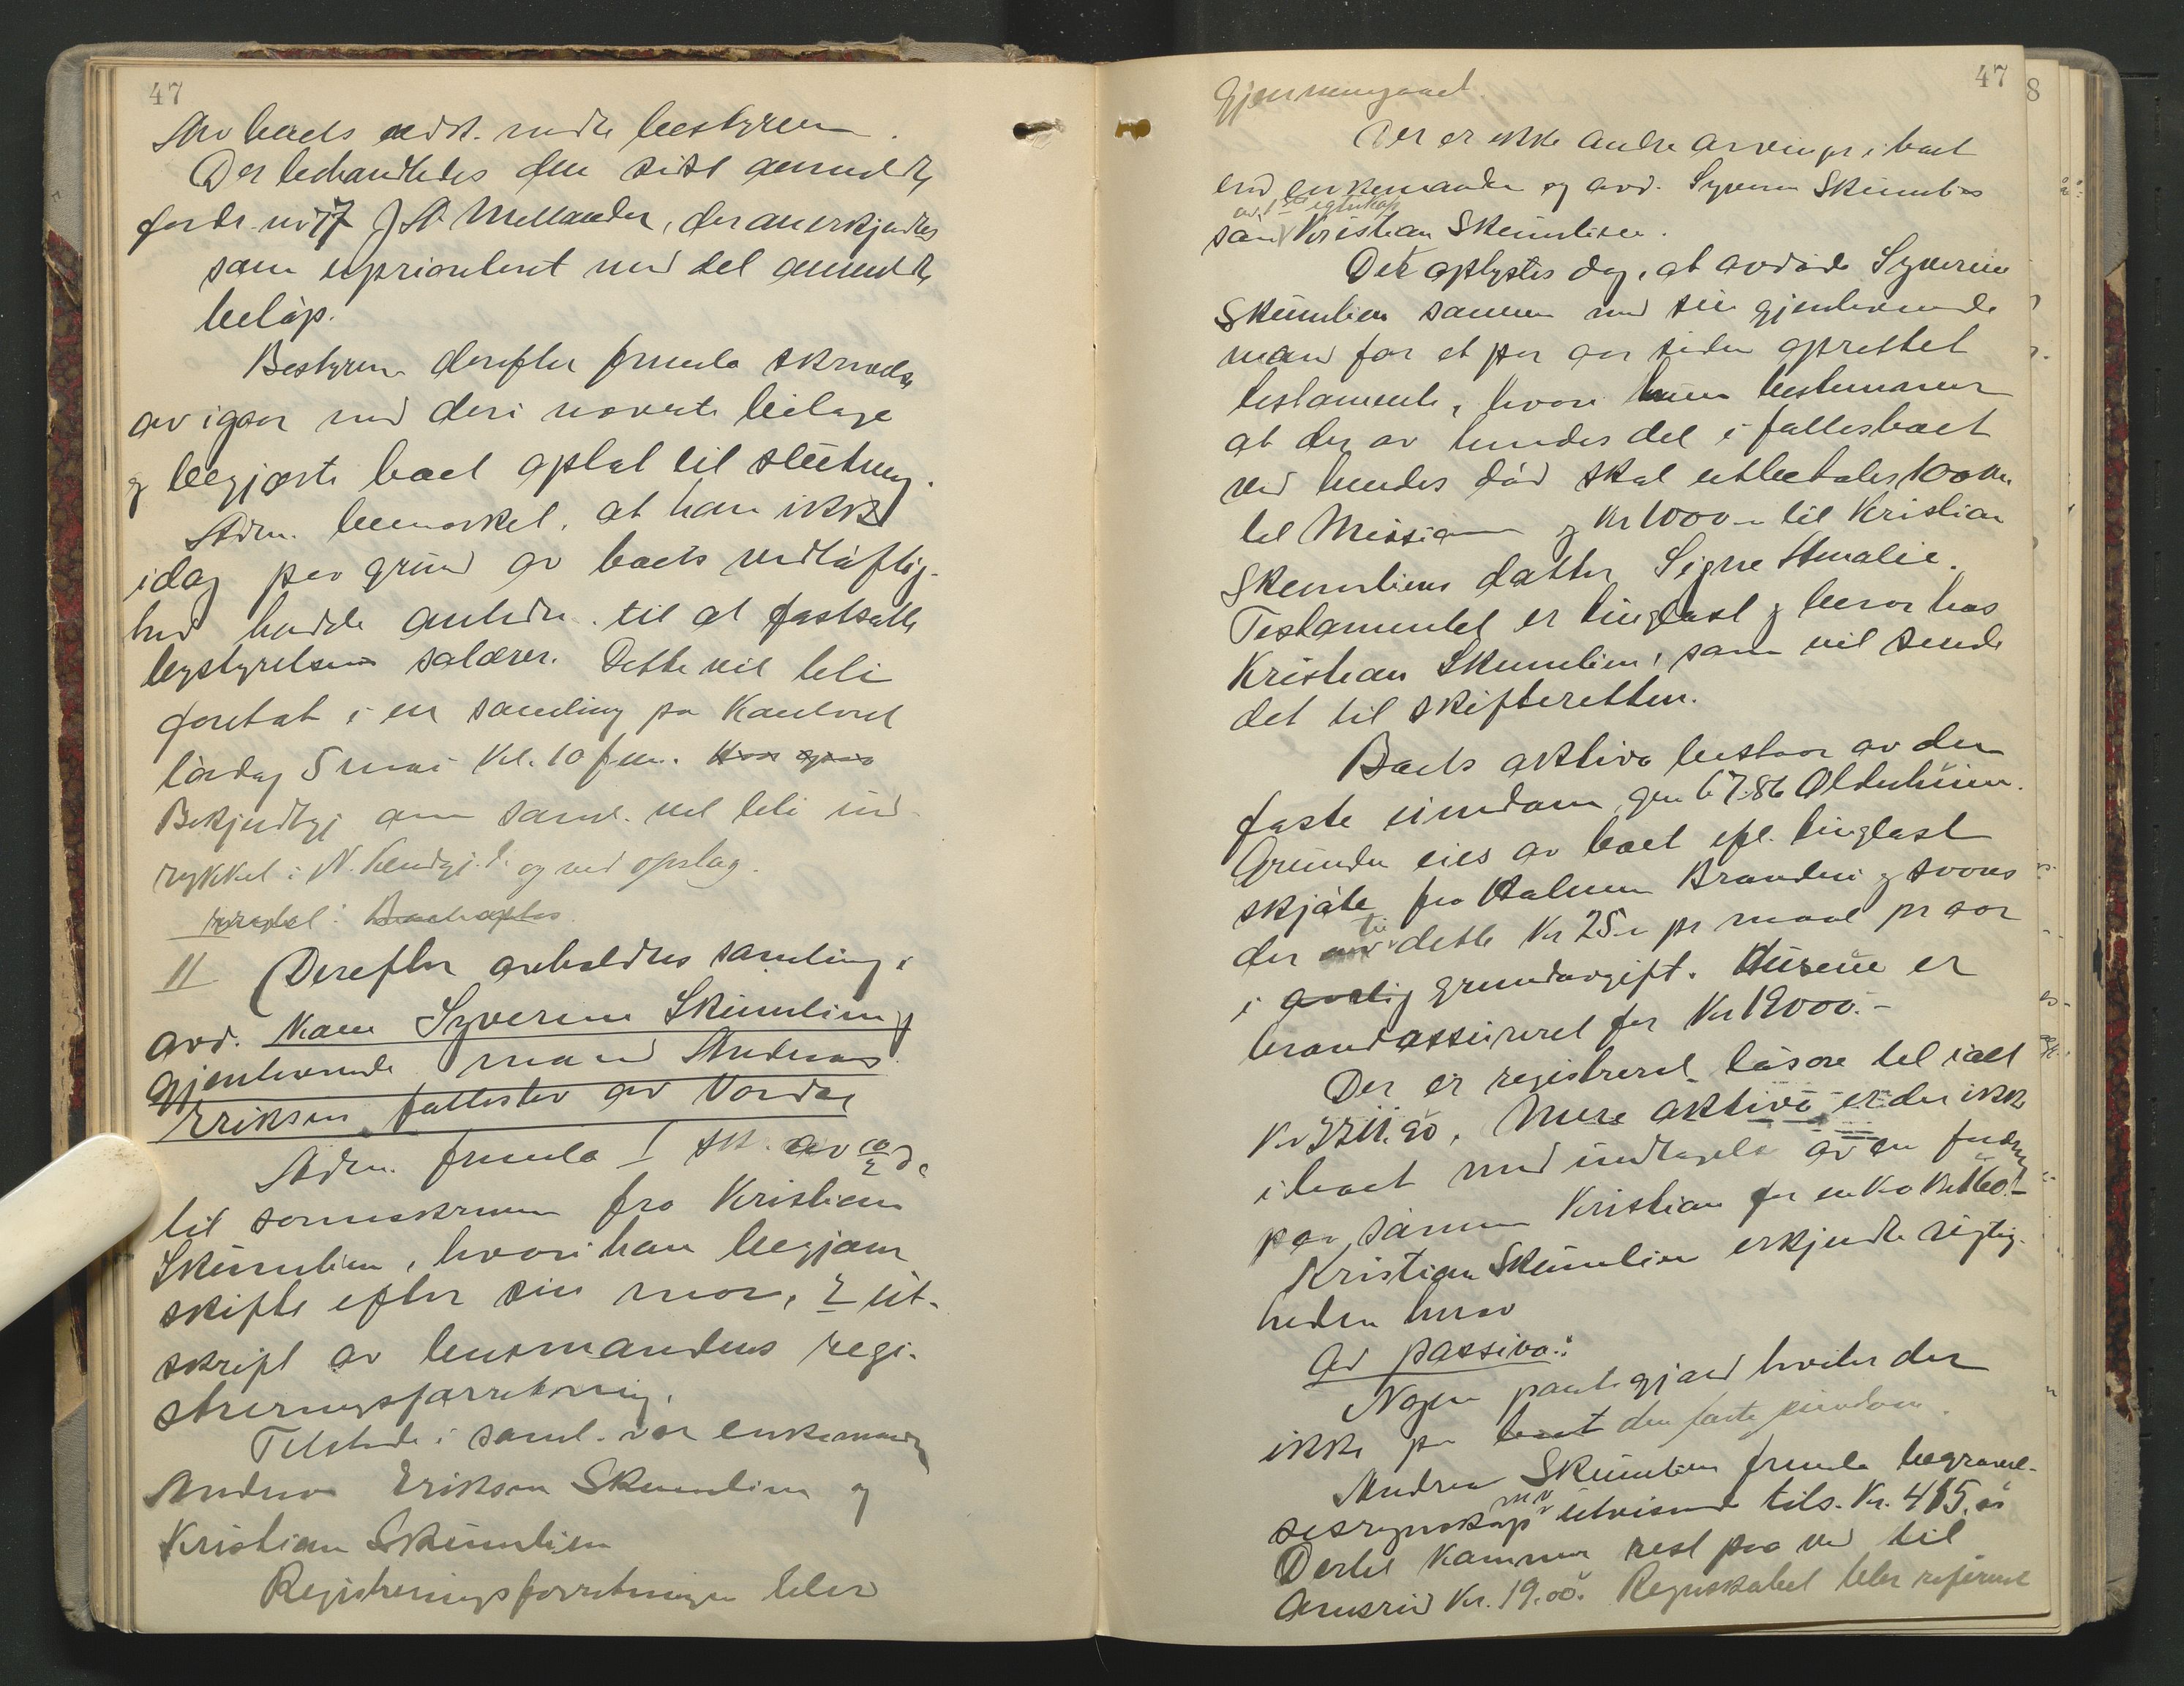 47
boets midt. midle bestyren.
Der behandledes den sidst anmeldte
fordr. nr 17 J. A. Mellander, der anerkjendtes
som uprioritert med det anmeldte
beløp.
Bestyreren derefter fremla skrivelse
av igaar med deri nævnte bilage
og begjærte boet optat til slutning.
Adm. bemerket, at han ikke
idag paa grund av boets vidløftig-
het hadde anledn. til at fastsætte
bestyrelsens salærer. Dette vil bli
foretat i en samling paa kontoret
lørdag 5 mai kl. 10 fm.
Bekjendtgj. om saml. vil bli ind-
rykket i N. kundgj.t. og ved opslag.
II Derefter avholdtes samling i
avd. Kone Syverine Skumlien og
gjenlevende mand Andreas
Eriksen fællesbo av Vardal
Adm. fremla 1 sk. av 10/2 d.a.
til sorenskriveren fra Kristian
Skumlien, hvori han begjærer
skifte efter sin mor, 2 ut-
skript av lensmandens regi-
streringsforretning.
Tilstede i saml. var enkemand
Andreas Eriksen Skumlien og
Kristian Skumlien
Registreringsforretningen blev
47
8
gjennemgaaet.
Der er ikke andre arvinger i boet
end enkemanden og avd. Syverine Skumliens
av 1ste egteskap
søn Kristian Skumlien.
Det oplystes dog, at avdøde Syverine
Skumlien sammen med sin gjenlevende
mand for et par aar siden oprettet
testamente, hvori hun bestemmer
at der av hendes del i fællesboet
ved hendes død skal utbetales 100 kr.
til Missionen og Kr 1000.- til Kristian
Skumliens datter Signe Amalie.
Testamentet er tinglæst og beror hos
Kristian Skumlien, som vil sende
det til skifteretten.
Boets aktiva bestaar av den
faste eiendom, gnr 67.86 Oldenheim.
Grunden eies av boet efl. tinglæst
skjøte fra Halvor Branderi og svares
der til dette Kr 25.- pr maal pr aar
i aarlig grundavgift. Husene er
brandassureret for Kr 19000.-
Der er registreret løsøre til ialt
Kr 3211.90. Mere aktiva er der ikke
i boet med undtagelse av en fordring
paa sønnen Kristian for en ko Kr 160.-
Kristian Skumlien erkjendte rigtig-
heden herav
Ad passiva:
Nogen pantegjæld hviler der
ikke paa den faste eiendom.
Andreas Skumlien fremla begravel-
sesregnskap m v utvisende tils. Kr. 415,00
Dertil kommer rest paa ved til
Kr. 19.00. Regnskabet blev refereret